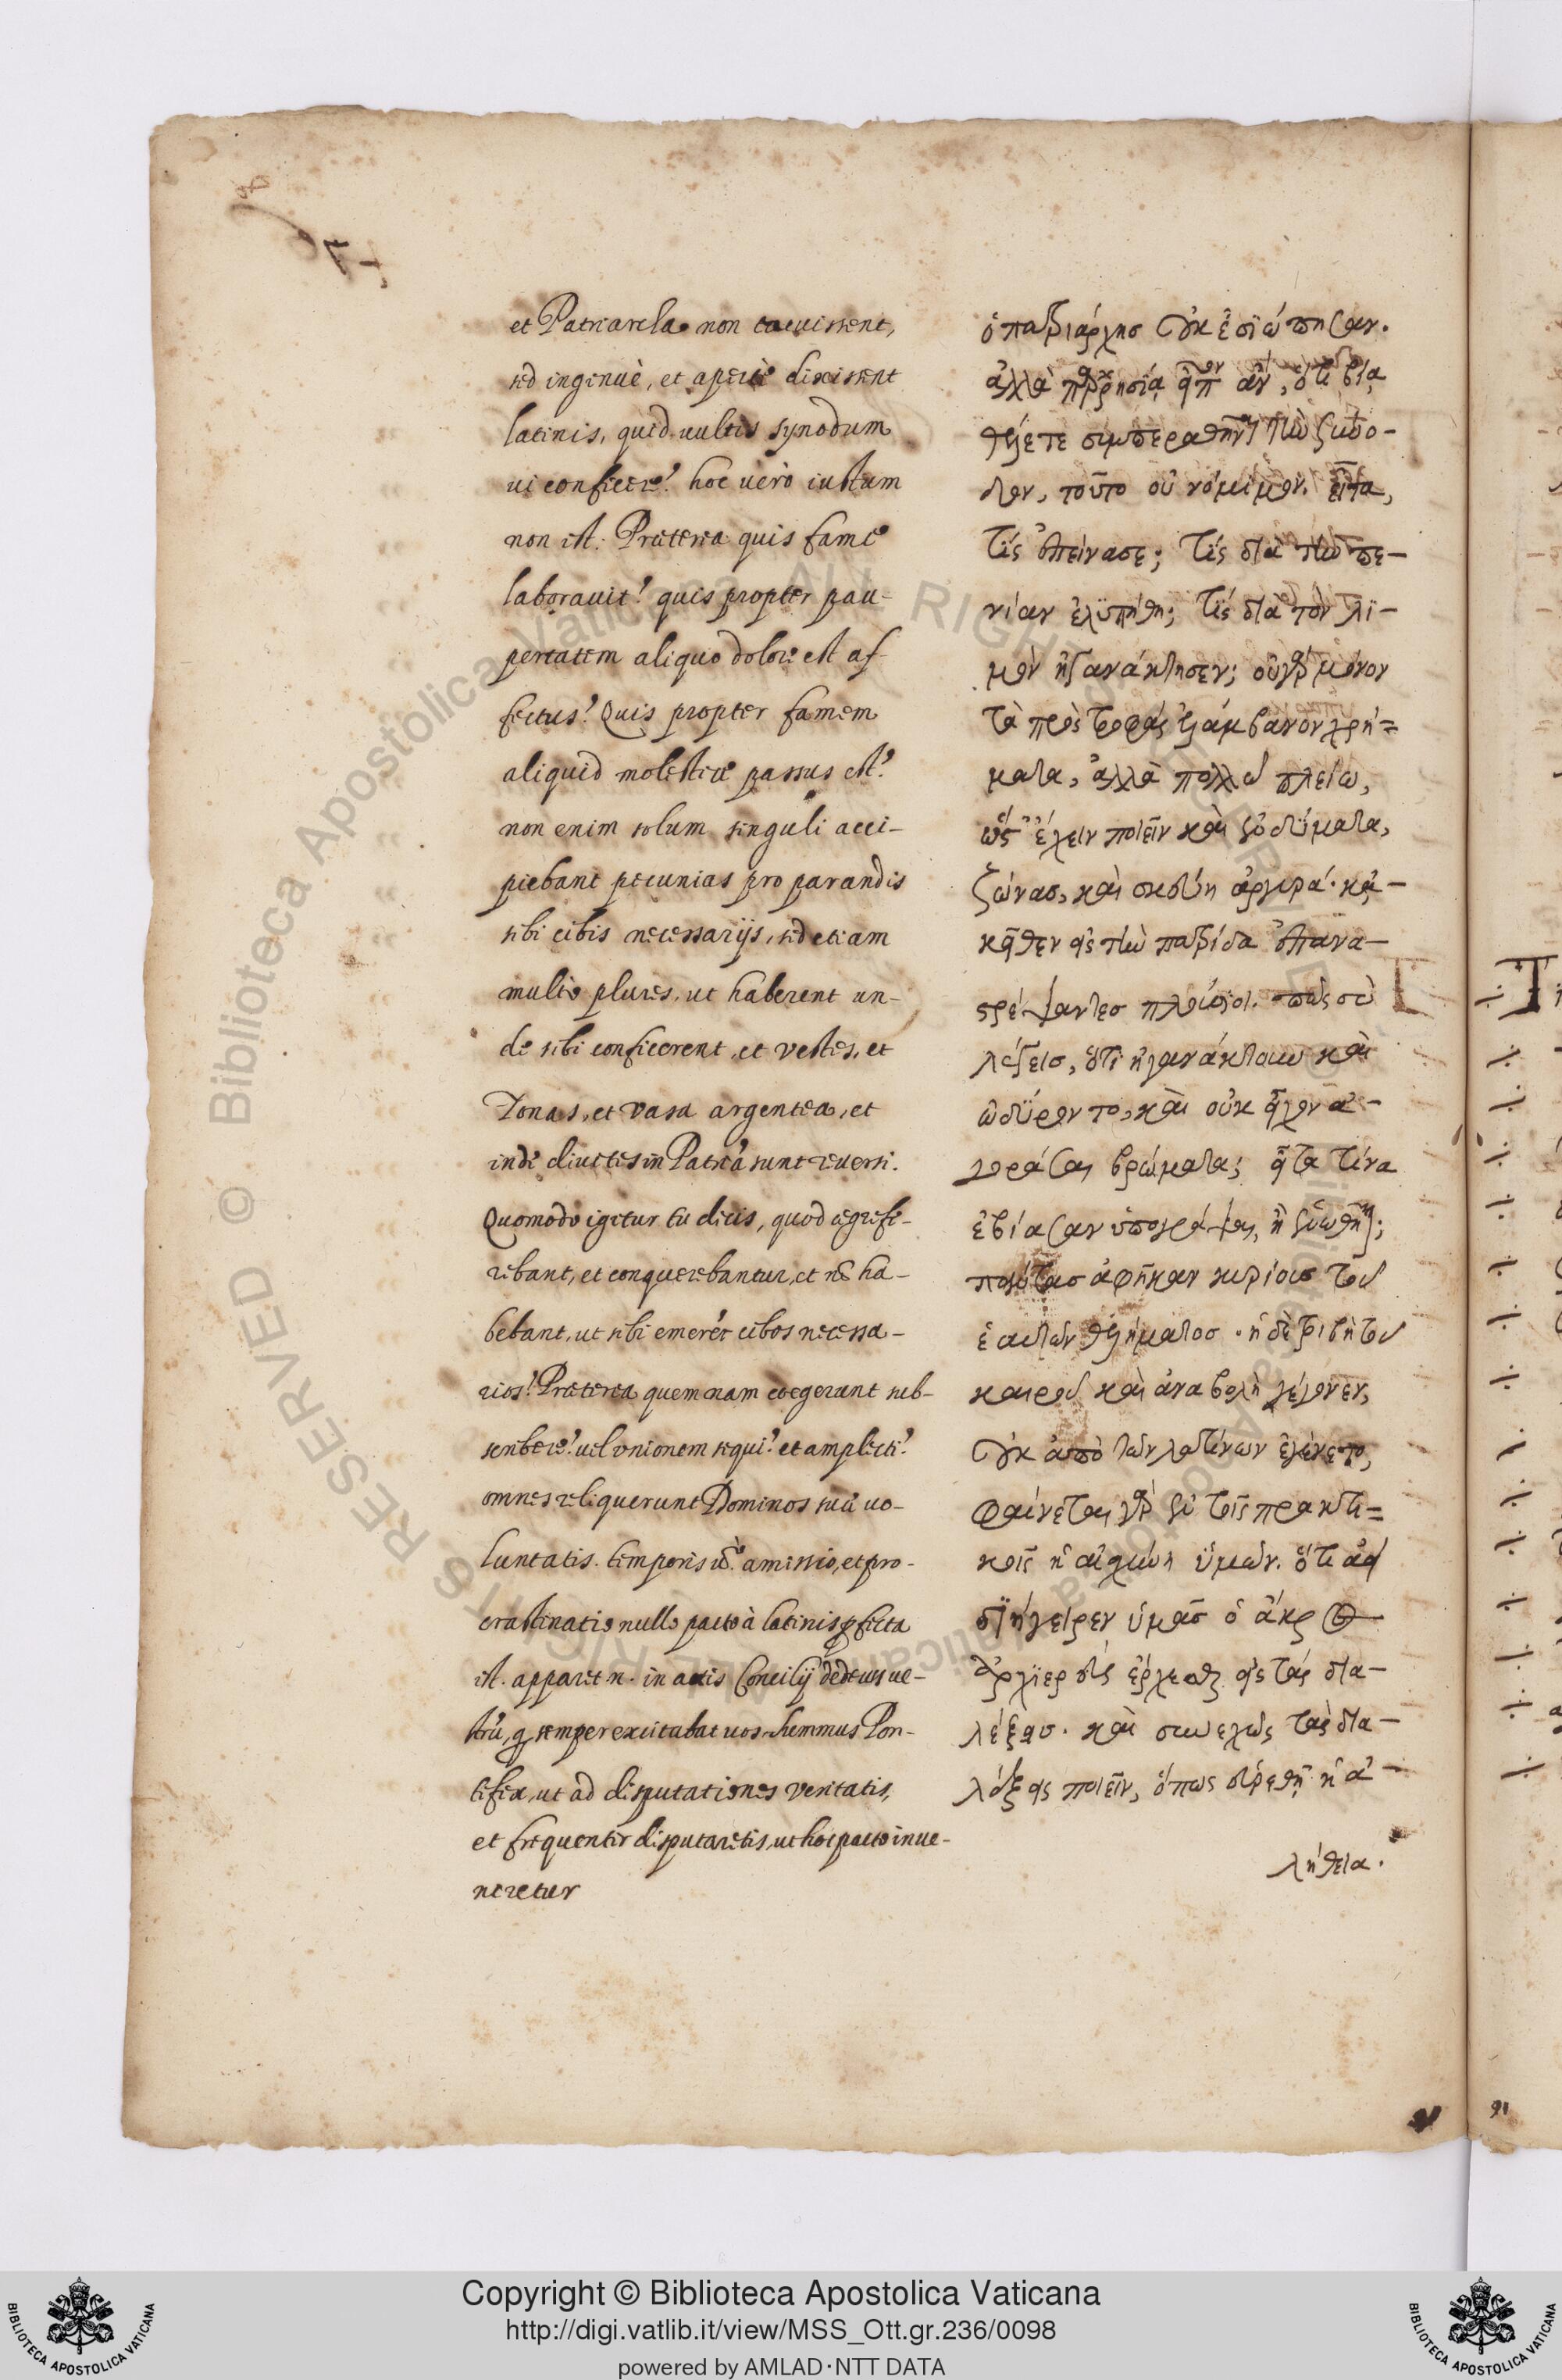 et Patriarcha non tacuissent,
sed ingenuè, et apertè dixissent
latinis, quid uultis synodum
ui conficere? hoc uerò iustum
non est. Præterea quis fame
laborauit? quis propter pau-
pertatem aliquo dolore est af-
fectus? Quis propter famem
aliquid molestiæ passus est?
non enim solum singuli acci-
piebant pecunias pro parandis
sibi cibis necessarijs, sed etiam
multo plures, ut haberent un-
de sibi conficerent, et vestes, et
Zonas, et vasa argentea, et
inde diuites in Patriã sunt reuersi.
Quomodo igitur tu dicis, quod ægrefe-
rebant, et conquerebantur, et nõ ha-
bebant, ut sibi emerẽt cibos necessa-
rios? Præterea quemnam coegerunt sub-
scribere? uel unionem sequi? et amplecti?
omnes reliquerunt Dominos suæ uo-
luntatis. temporis amissio, et pro-
crastinatio nullo pacto à latinis
est. apparet n. in actis Concilij dedecus ue-
strũ, semper excitabat uos summus Pon-
tifex, ut ad disputationes veritatis,
et frequenter disputaretis, ut hoc pacto inue-
niretur
ὁ πατριάρχησ οὐκ ἐσιώπησαν.
ἀλλὰ παρρησίᾳ εἶπον ἂν, ὅτι βίᾳ
θέλετε συμπεραθῆναι τὴν σύνο-
δον, τοῦτο οὐ νόμιμον. εἶτα,
τίς ἐπείνασε; τίς διὰ τὴν πε-
νίαν ἐλϋπήθη; τίς διὰ τὸν λϊ-
μὸν ἠγανάκτησεν; οὐ γὰρ μόνον
τὰ πρὸς τροφὰς ἐλάμβανον χρή=
ματα, ἀλλὰ πολλοῦ πλείω,
ὥστε ἔχειν ποιεῖν καὶ ἐνδύματα,
ζώνασ, καὶ σκεύη ἀργυρά· κἀ-
κεῖθεν εἰς τὴν πατρίδα ἐπανα-
στρέψαντεσ πλούσιοι. πῶς σὺ
λέγεισ, ὅτι ἠγανάκτουν καὶ
ὠδύροντο, καὶ οὐκ εἶχον ἀ-
γοράσαι βρώματα; εἶτα τίνα
ἐβίασαν ὑπογράψαι, ἢ ἑνωθῆναι;
πάντασ ἀφῆκαν κυρίουσ τοῦ
ἑαυτῶν θελήματοσ. ἡ δὲ τριβὴ τοῦ
καιροῦ καὶ ἀναβολὴ γέγονεν,
οὐκ ἀπὸ τῶν λατίνων ἐγένετο,
φαίνεται γὰρ ἐν τοῖς πρακτι=
κοῖς ἡ αἰσχύνη ὑμῶν. ὅτι ἀεὶ
διήγειρεν ὑμᾶσ ὁ ἄκρος
ἀρχιερεὺς ἔρχεσθαι εἰς τὰς δια-
λέξεισ. καὶ συνεχῶς τὰς δια-
λέξεις ποιεῖν, ὅπως εὑρεθῇ ἡ ἀ-
λήθεια.
91
© Biblioteca Apostolica Vaticana ALL RIGHTS RESERVED
Copyright © Biblioteca Apostolica Vaticana
http://digi.vatlib.it/view/MSS_Ott.gr.236/0098
powered by AMLAD·NTT DATA
BIBLIOTECA APOSTOLICA VATICANA
BIBLIOTECA APOSTOLICA VATICANA